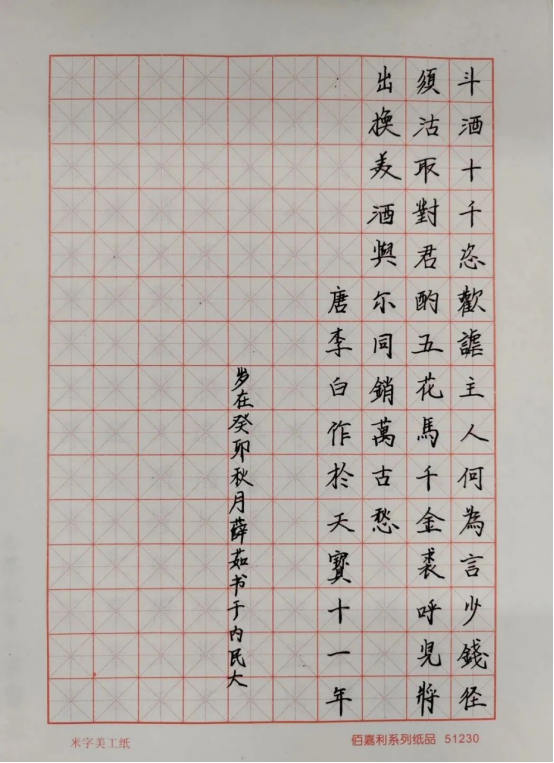 斗酒十千恣歡謔主人何為言少錢径
須沽取對君酌五花馬千金裘呼児將
出換美酒與尔同銷萬古愁
唐李白作於天寳十一年
岁在癸卯秋月薛茹书于内民大
米字美工纸
佰嘉利系列纸品 51230